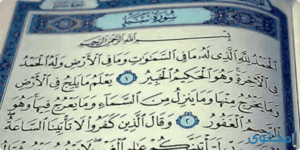 سورة سبإ
بسم الله الرحمن الرحيم
الحمد لله الذي له ما في السموت وما في الأرض وله الحمد
في الآخرة وهو الحكيم الخبير ١ يعلم ما يلج في الأرض
وما يخرج منها وما ينزل من السماء وما يعرج فيها وهو
الرحيم الغفور ٢ وقال الذين كفروا لا تأتينا الساعة